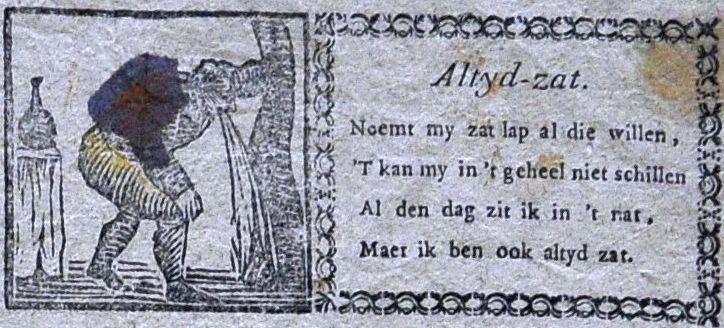 Altyd-zat.
Noemt my zat lap al die willen,
'T kan my in 't geheel niet schillen
Al den dag zit ik in 't nat,
Maer ik ben ook altyd zat.